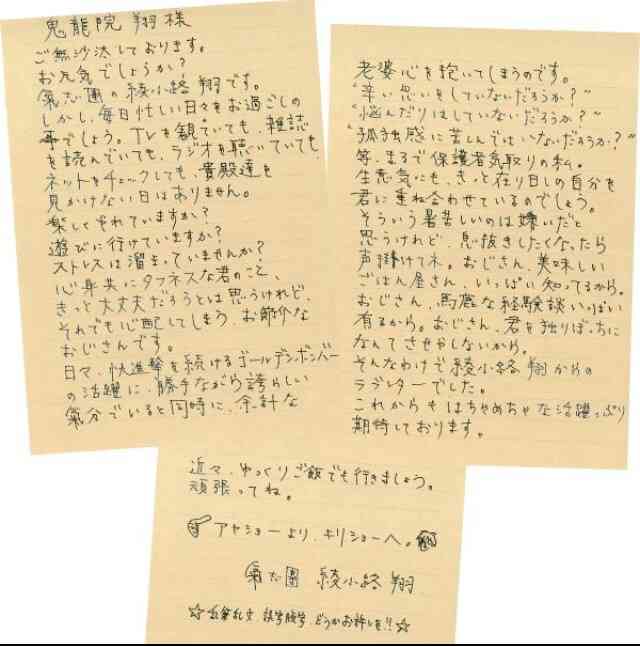 鬼龍院 翔 様
ご無沙汰しております。
お元気でしょうか？
氣志團の綾小路 翔です。
しかし、毎日忙しい日々をお過ごしの
事でしょう。TVを観ていても、雑誌
を読んでいても、ラジオを聴いていても、
ネットをチェックしても、貴殿達を
見かけない日はありません。
楽しくやれていますか？
遊びに行けていますか？
ストレスは溜まっていませんか？
心身共にタフネスな君のこと、
きっと大丈夫だろうとは思うけれど、
それでも心配してしまう、お節介な
おじさんです。
日々、快進撃を続けるゴールデンボンバー
の活躍に、勝手ながら誇らしい
氣分でいると同時に、余計な
老婆心を抱いてしまうのです。
“辛い思いをしていないだろうか？”
“悩んだりはしていないだろうか？”
“孤独感に苦しんではいないだろうか？”
等、まるで保護者気取りの私。
生意気にも、きっと在りし日の自分を
君に重ね合わせているのでしょう。
そういう暑苦しいのは嫌いだと
思うけれど、息抜きしたくなったら
声掛けてネ。おじさん、美味しい
ごはん屋さん、いっぱい知ってるから。
おじさん、馬鹿な経験談いっぱい
有るから。おじさん、君を独りぼっちに
なんてさせやしないから。
そんなわけで綾小路 翔からの
ラブレターでした。
これからもはちゃめちゃな活躍っぷり
期待しております。
近々、ゆっくりご飯でも行きましょう。
頑張ってね。
アヤショーより、キリショーへ。
氣志團 綾小路 翔
☆乱筆乱文、誤字脱字、どうかお許しを!!☆